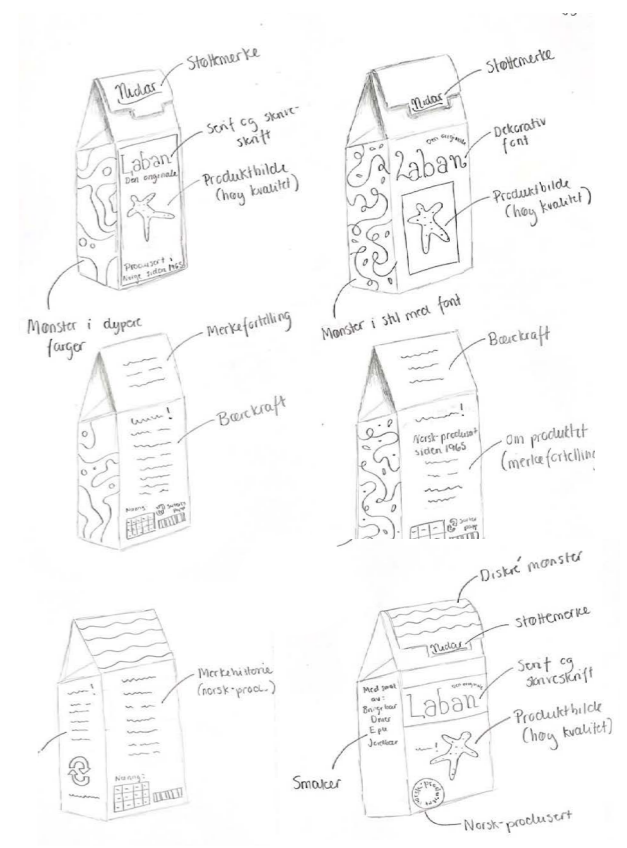 Nidar
Støttemerke
Laban
Den originale
Serif og skrive-
skrift
Produktbilde
(høy kvalitet)
Produsert i
Norge siden 1965
Mønster i dypere
farger
Nidar
Støttemerke
Den originale
Laban
Dekorativ
font
Produktbilde
(høy kvalitet)
Mønster i stil med font
Merkefortelling
!
Bærekraft
Næring
Bærekraft
!
Norsk-produsert
siden 1965
Om produktet
(merkefortelling
Merkehistorie
(norsk-prod..)
!
Næring:
Diskré mønster
Nidar
Støttemerke
Med smak
av:
Bringebær
Eple
Jordbær
Den originale
Laban
Serif og
skriveskrift
Produktbilde
(høy kvalitet)
Smaker
Norsk-produsert
Norsk-produsert